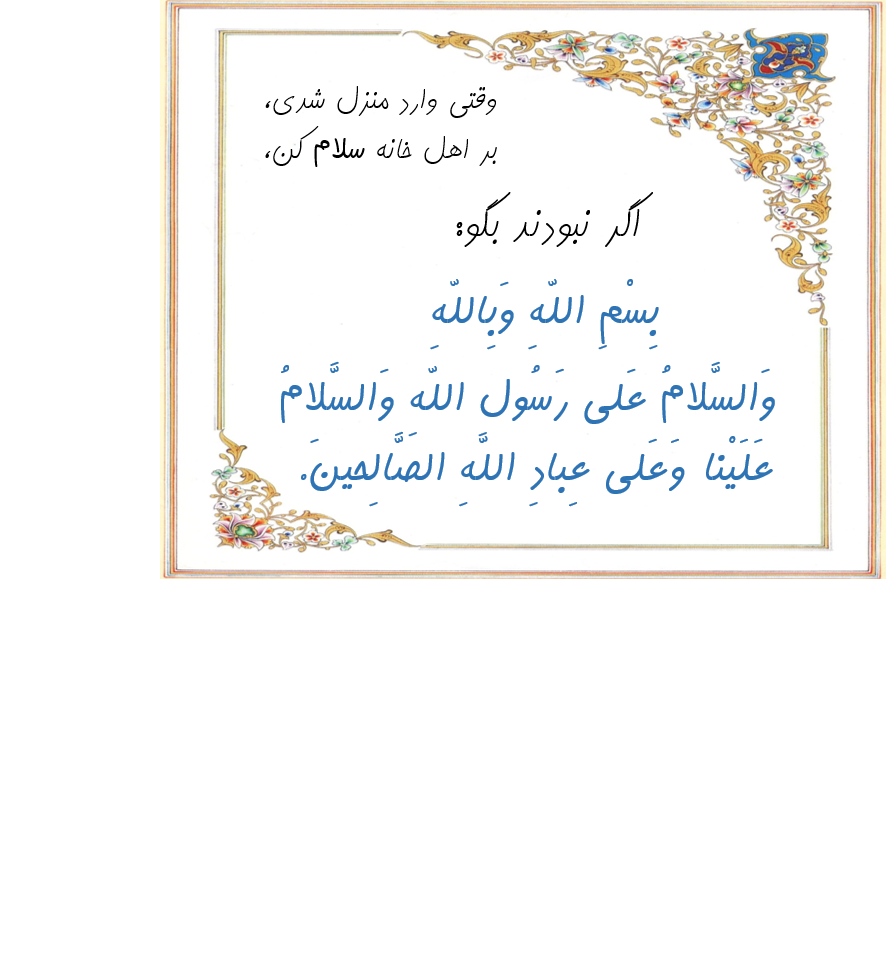 وقتی وارد منزل شدی،
بر اهل خانه سلام کن،
اگر نبودند بگو:
بِسْمِ اللّهِ وَبِاللّهِ
وَالسَّلامُ عَلی رَسُول اللّه وَالسَّلامُ
عَلَیْنا وَعَلَی عِبادِ اللَّهِ الصَّالِحینَ.